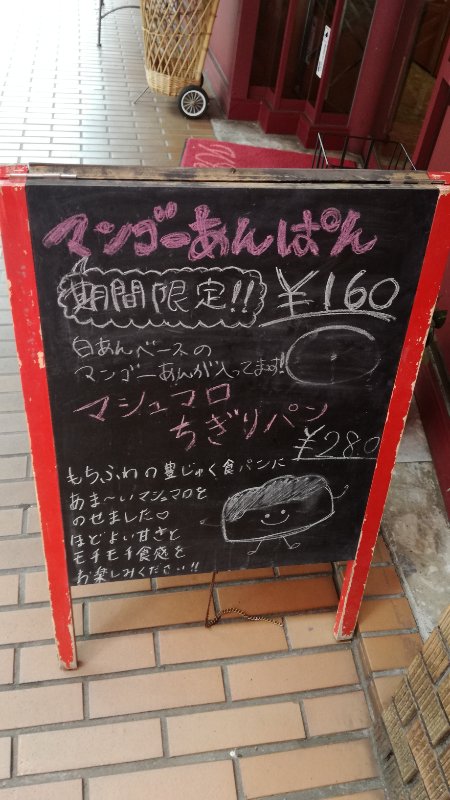 マンゴーあんぱん
期間限定!! ¥160
白あんベースの
マンゴーあんが入ってます!
マシュマロ
ちぎりパン
¥280
もちふわの豊じゅく食パンに
あま〜いマシュマロを
のせました♡
ほどよい甘さと
モチモチ食感を
お楽しみください!!